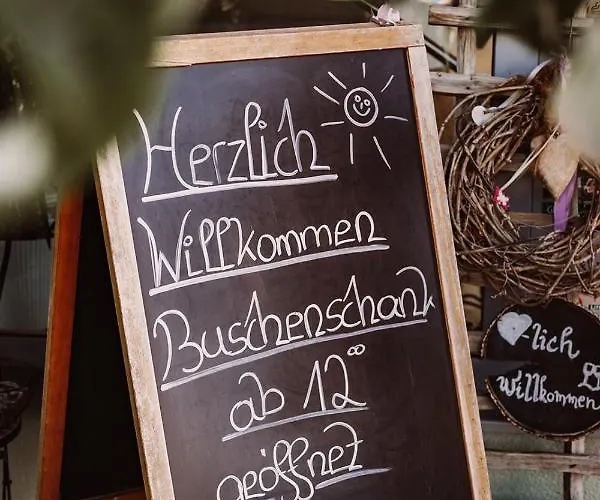 Herzlich
Willkommen
Buschenschank
ab 12⁰⁰
geöffnet
-lich
willkommen